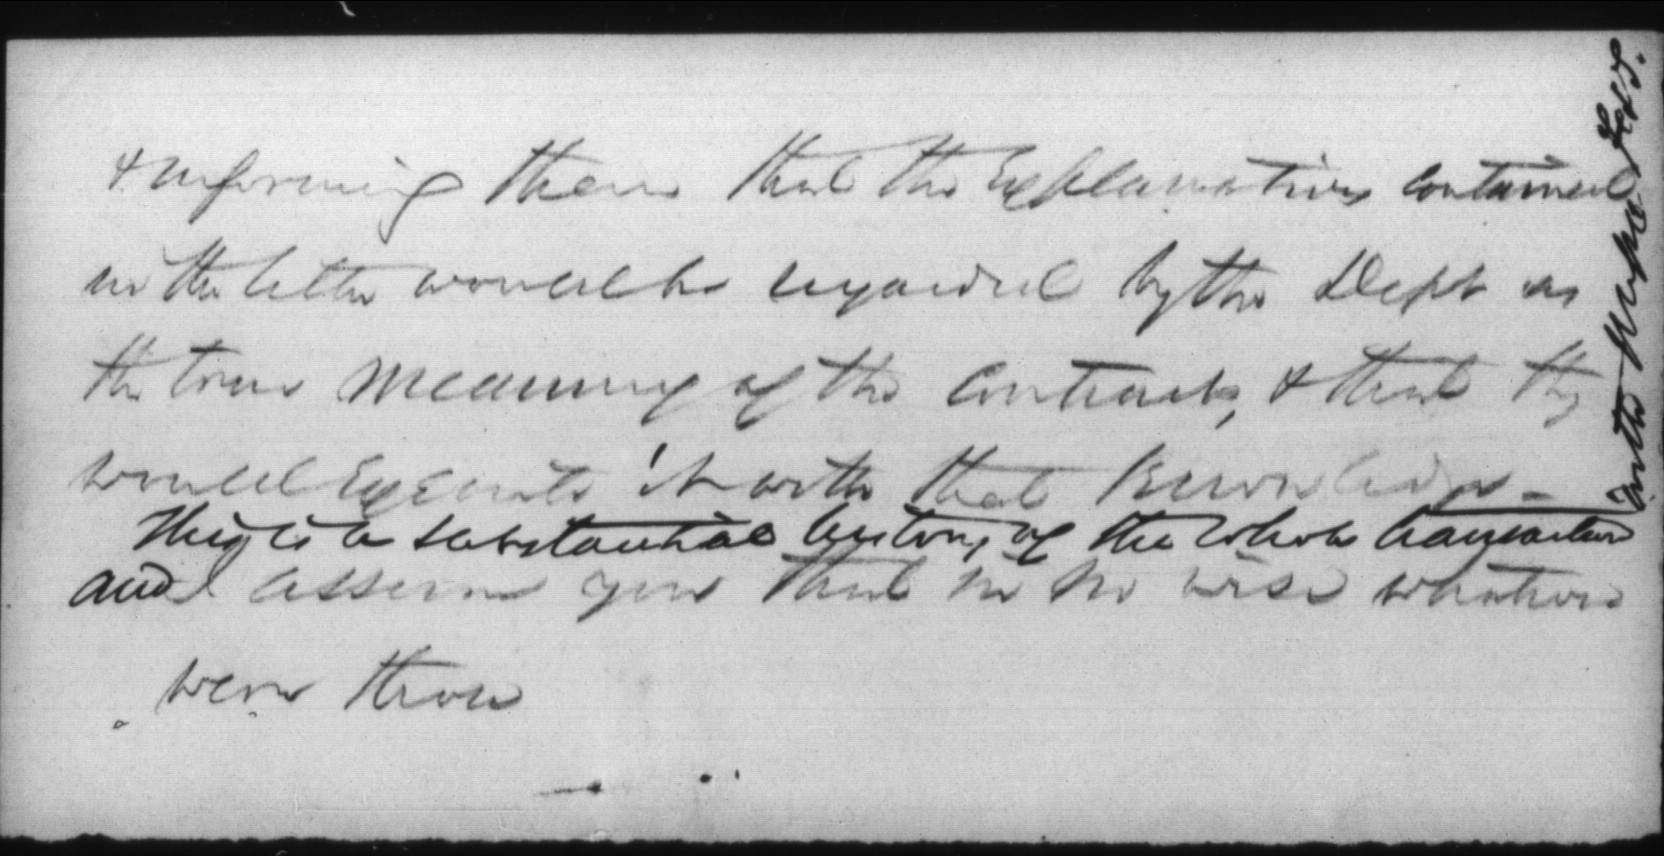 & informing them that the Explanations contained
in the letter would be regarded by the Dept as
the true meaning of the Contracts, & that they
would Execute it with that Knowledge -
This is a substantial history of the whole transaction
with
Dept.
and I assure you that in no wise whatever
were those